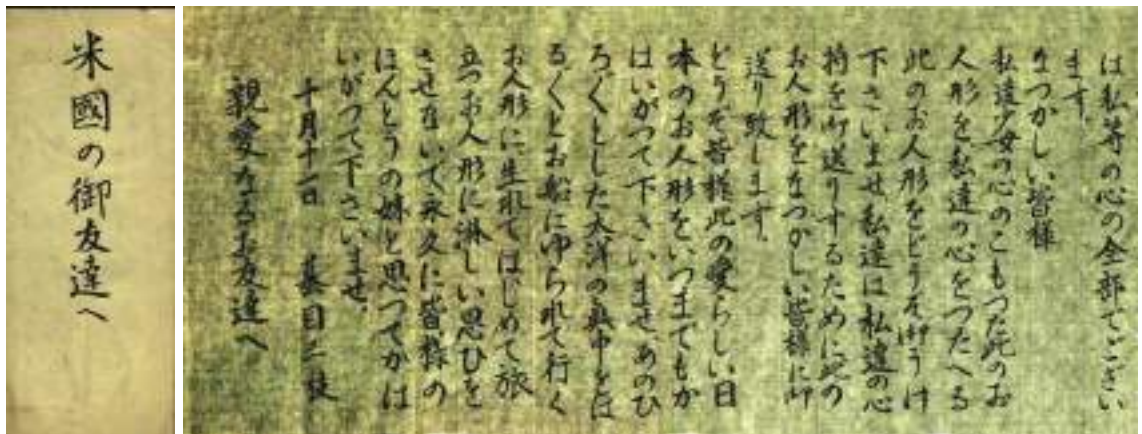 米國の御友達へ
は私等の心の全部でござい
ます。
なつかしい皆様
私達少女の心のこもつた此のお
人形を私達の心をつたへる
此のお人形をどうぞ御うけ
下さいませ私達は私達の心
持を御送りするために此の
お人形をなつかしい皆様に御
送り致します。
どうぞ皆様此の愛らしい日
本のお人形をいつまでもか
はいがつて下さいませあのひ
ろ〲とした太洋の真中をは
る〲とお船にゆられて行く
お人形に生れてはじめて旅
立つお人形に淋しい思ひを
させないで永久に皆様の
ほんとうの妹と思つてかは
いがつて下さいませ。
十月十一日
親愛なるお友達へ